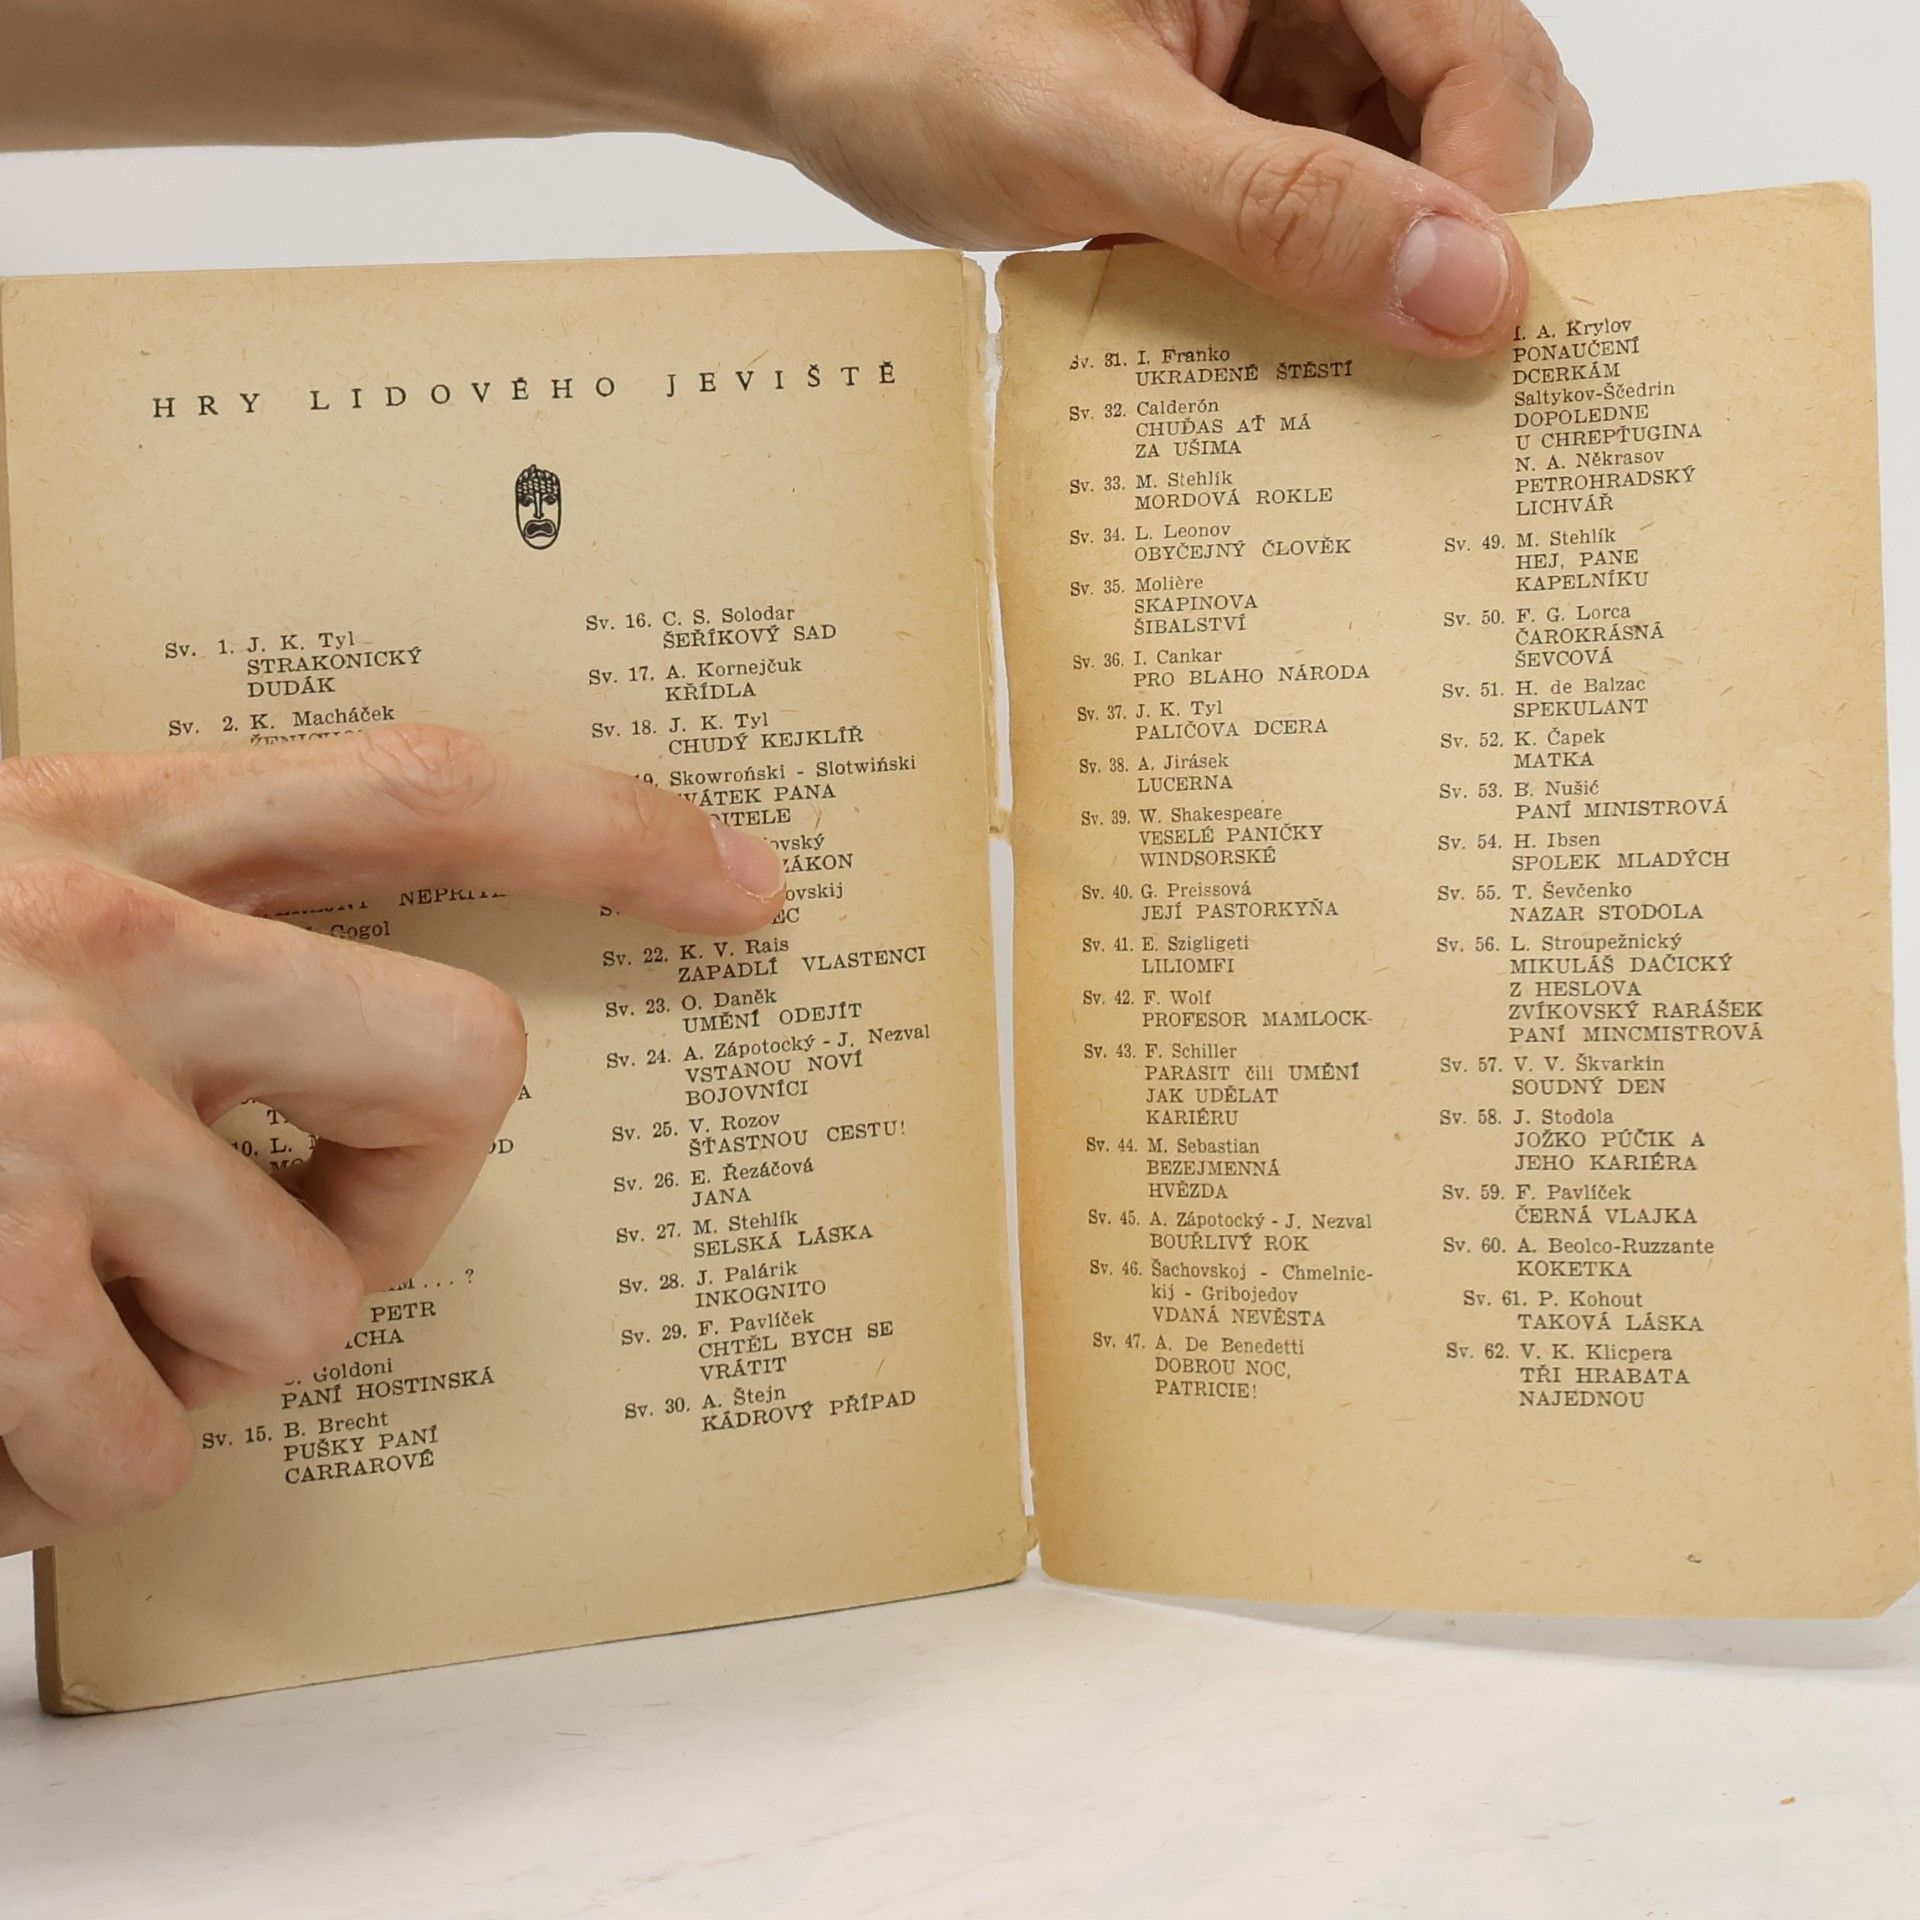 HRY LIDOVÉHO JEVIŠTĚ
Sv. 1. J. K. Tyl
STRAKONICKÝ
DUDÁK
Sv. 2. K. Macháček
Gogol
10. L.
PETR
Goldoni
PANÍ HOSTINSKÁ
Sv. 15. B. Brecht
PUŠKY PANÍ
CARRAROVÉ
Sv. 16. C. S. Solodar
ŠEŘÍKOVÝ SAD
Sv. 17. A. Kornejčuk
KŘÍDLA
Sv. 18. J. K. Tyl
CHUDÝ KEJKLÍŘ
Skowroński - Slotwiński
PANA
ZÁKON
Sv. 22. K. V. Rais
ZAPADLÍ VLASTENCI
Sv. 23. O. Daněk
UMĚNÍ ODEJÍT
Sv. 24. A. Zápotocký - J. Nezval
VSTANOU NOVÍ
BOJOVNÍCI
Sv. 25. V. Rozov
ŠŤASTNOU CESTU!
Sv. 26. E. Řezáčová
JANA
Sv. 27. M. Stehlík
SELSKÁ LÁSKA
Sv. 28. J. Palárik
INKOGNITO
Sv. 29. F. Pavlíček
CHTĚL BYCH SE
VRÁTIT
Sv. 30. A. Štejn
KÁDROVÝ PŘÍPAD
Sv. 31. I. Franko
UKRADENÉ ŠTĚSTÍ
Sv. 32. Calderón
CHUĎAS AŤ MÁ
ZA UŠIMA
Sv. 33. M. Stehlík
MORDOVÁ ROKLE
Sv. 34. L. Leonov
OBYČEJNÝ ČLOVĚK
Sv. 35. Molière
SKAPINOVA
ŠIBALSTVÍ
Sv. 36. I. Cankar
PRO BLAHO NÁRODA
Sv. 37. J. K. Tyl
PALIČOVA DCERA
Sv. 38. A. Jirásek
LUCERNA
Sv. 39. W. Shakespeare
VESELÉ PANIČKY
WINDSORSKÉ
Sv. 40. G. Preissová
JEJÍ PASTORKYŇA
Sv. 41. E. Szigligeti
LILIOMFI
Sv. 42. F. Wolf
PROFESOR MAMLOCK
Sv. 43. F. Schiller
PARASIT čili UMĚNÍ
JAK UDĚLAT
KARIÉRU
Sv. 44. M. Sebastian
BEZEJMENNÁ
HVĚZDA
Sv. 45. A. Zápotocký - J. Nezval
BOUŘLIVÝ ROK
Sv. 46. Šachovskoj - Chmelnic-
kij - Gribojedov
VDANÁ NEVĚSTA
Sv. 47. A. De Benedetti
DOBROU NOC,
PATRICIE!
I. A. Krylov
PONAUČENÍ
DCERKÁM
Saltykov-Ščedrin
DOPOLEDNE
U CHREPŤUGINA
N. A. Někrasov
PETROHRADSKÝ
LICHVÁŘ
Sv. 49. M. Stehlík
HEJ, PANE
KAPELNÍKU
Sv. 50. F. G. Lorca
ČAROKRÁSNÁ
ŠEVCOVÁ
Sv. 51. H. de Balzac
SPEKULANT
Sv. 52. K. Čapek
MATKA
Sv. 53. B. Nušić
PANÍ MINISTROVÁ
Sv. 54. H. Ibsen
SPOLEK MLADÝCH
Sv. 55. T. Ševčenko
NAZAR STODOLA
Sv. 56. L. Stroupežnický
MIKULÁŠ DAČICKÝ
Z HESLOVA
ZVÍKOVSKÝ RARÁŠEK
PANÍ MINCMISTROVÁ
Sv. 57. V. V. Škvarkin
SOUDNÝ DEN
Sv. 58. J. Stodola
JOŽKO PÚČIK A
JEHO KARIÉRA
Sv. 59. F. Pavlíček
ČERNÁ VLAJKA
Sv. 60. A. Beolco-Ruzzante
KOKETKA
Sv. 61. P. Kohout
TAKOVÁ LÁSKA
Sv. 62. V. K. Klicpera
TŘI HRABATA
NAJEDNOU